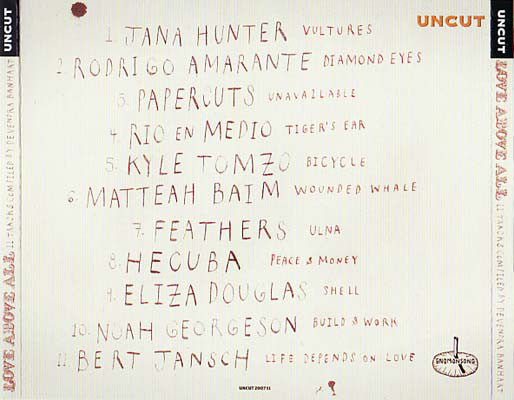 UNCUT
UNCUT
UNCUT
1. JANA HUNTER VULTURES
2. RODRIGO AMARANTE DIAMOND EYES
3. PAPERCUTS UNAVAILABLE
4. RIO EN MEDIO TIGER'S EAR
5. KYLE TOMZO BICYCLE
6. MATTEAH BAIM WOUNDED WHALE
7. FEATHERS ULNA
8. HECUBA PEACE & MONEY
9. ELIZA DOUGLAS SHELL
10. NOAH GEORGESON BUILD & WORK
11. BERT JANSCH LIFE DEPENDS ON LOVE
GNOMONSONG
UNCUT 2007 11
LOVE ABOVE ALL 11 TRACKS COMPILED BY DEVENDRA BANHART
LOVE ABOVE ALL 11 TRACKS COMPILED BY DEVENDRA BANHART